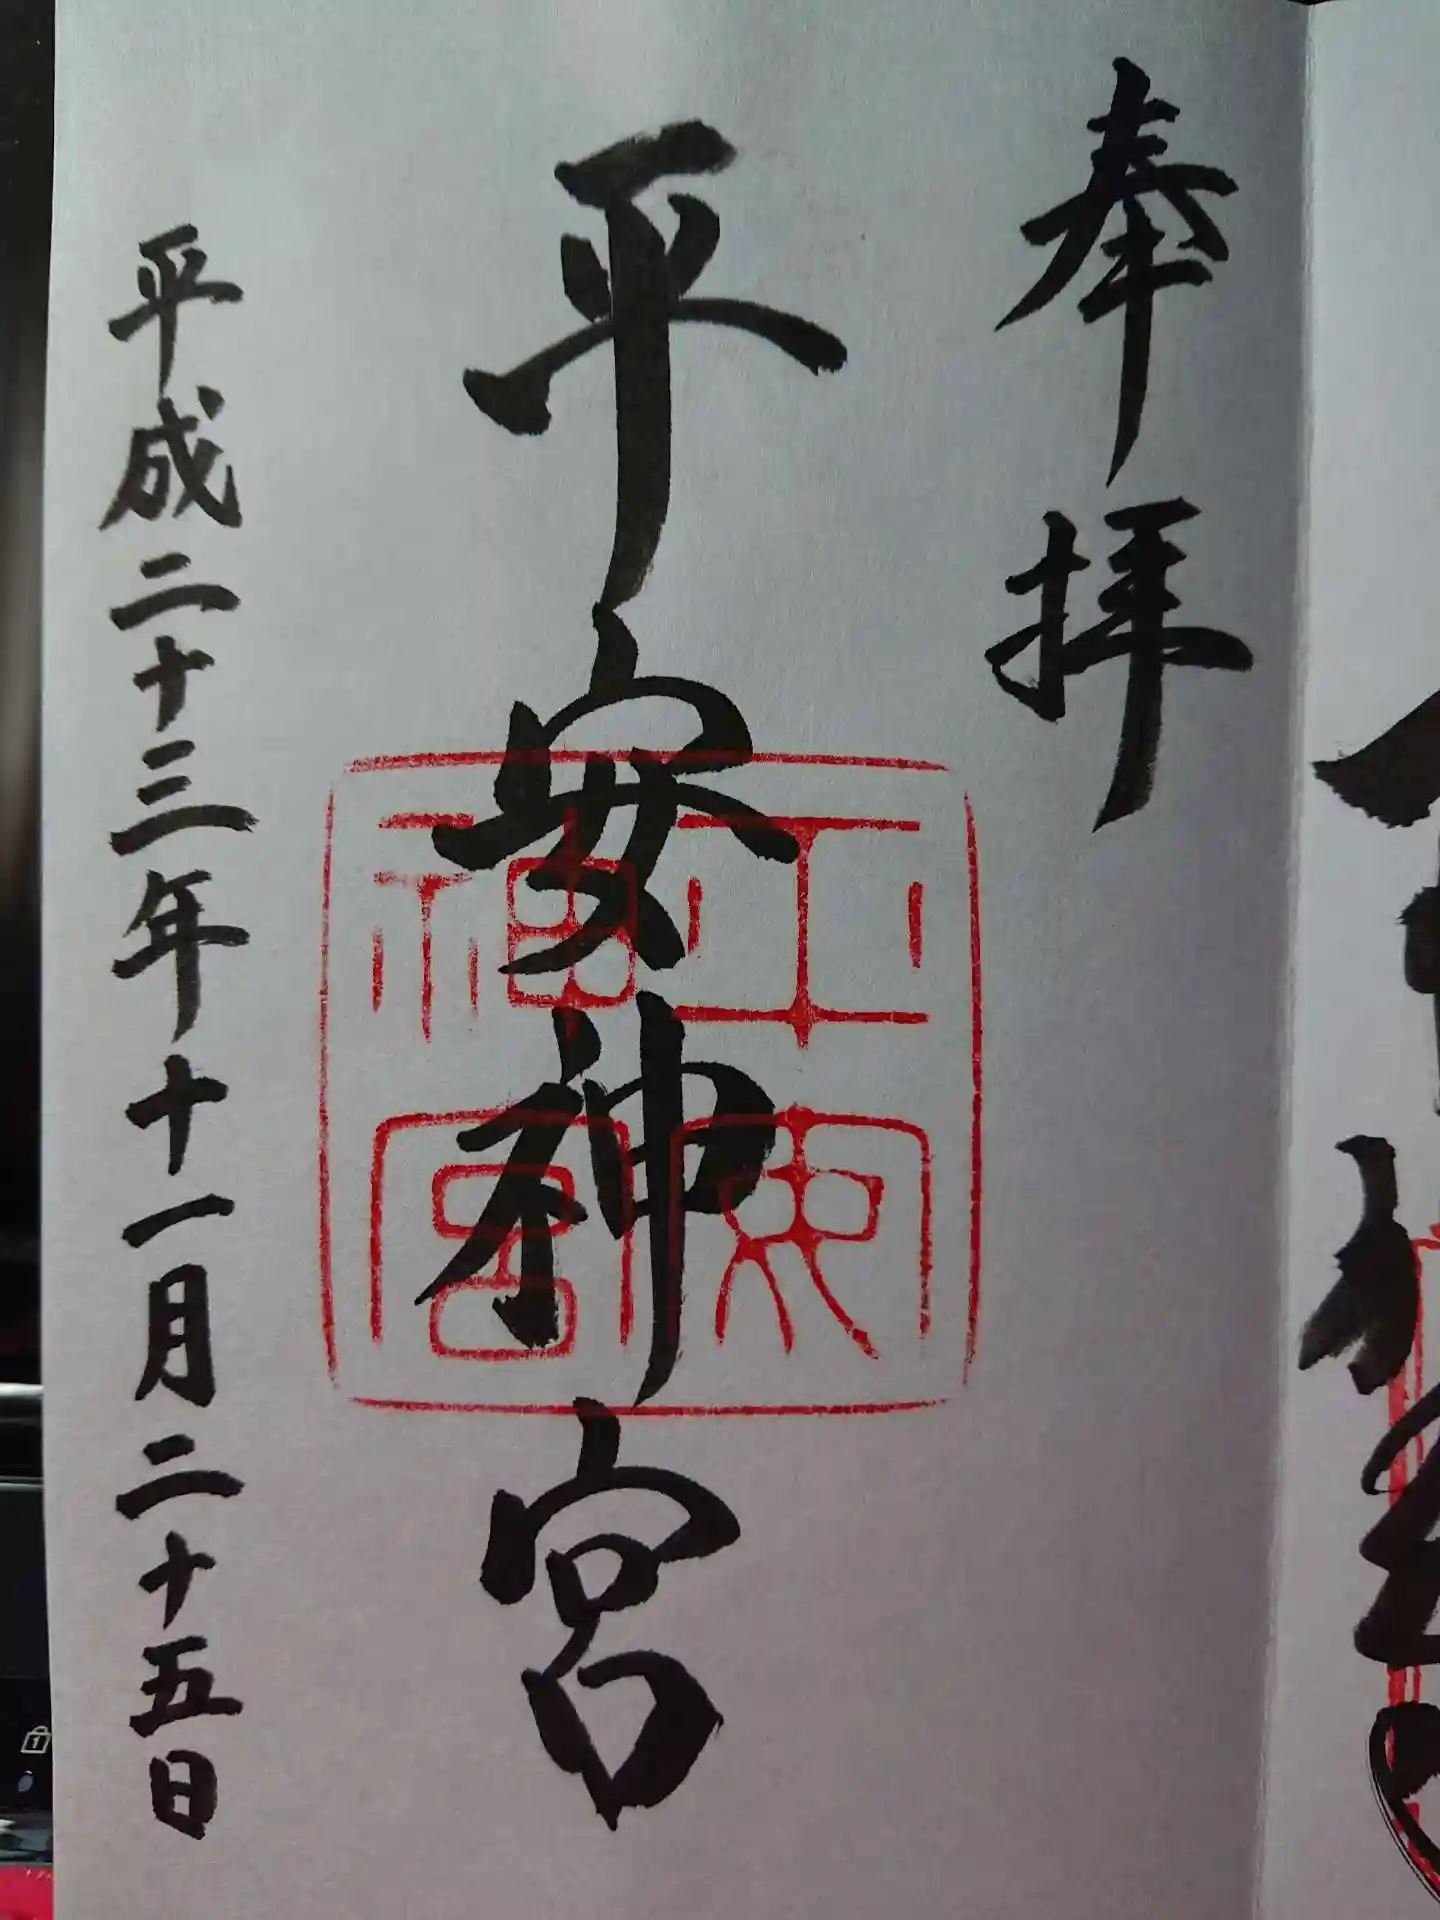 奉拝
平安神宮
平安神宮
平成二十三年十一月二十五日